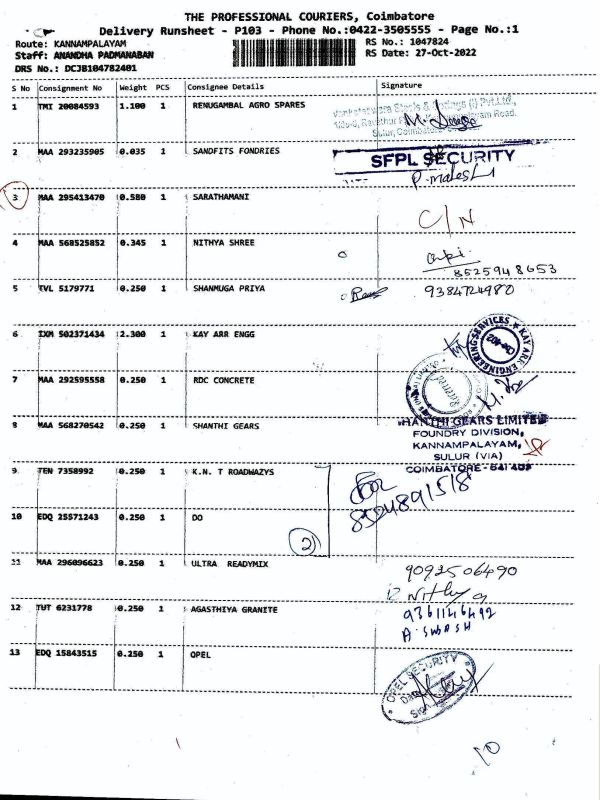 THE PROFESSIONAL COURIERS, Coimbatore
Delivery Runsheet - P103 - Phone No.:0422-3505555 - Page No.:1
Route: KANNAMPALAYAM RS No.: 1047824
Staff: ANANDHA PADMANABAN RS Date: 27-Oct-2022
DRS No.: DCJB104782401
S No Consignment No Weight PCS Consignee Details Signature
1 TMI 20084593 1.100 1 RENUGAMBAL AGRO SPARES
2 MAA 293235905 0.035 1 SANDFITS FONDRIES
SFPL SECURITY
P. malesh
3 MAA 295413470 0.580 1 SARATHAMANI
C/N
4 MAA 568525852 0.345 1 NITHYA SHREE
8525948653
5 TVL 5179771 0.250 1 SHANMUGA PRIYA 9384724980
6 IXM 502371434 2.300 1 KAY ARR ENGG
7 MAA 292595558 0.250 1 RDC CONCRETE
8 MAA 568270542 0.250 1 SHANTHI GEARS
HANTHI GEARS LIMITED
FOUNDRY DIVISION,
KANNAMPALAYAM,
SULUR (VIA)
COIMBATORE - 641 402
9 TEN 7358992 0.250 1 K.N. T ROADWAZYS
8524891518
10 EDQ 25571243 0.250 1 DO
2)
11 MAA 296096623 0.250 1 ULTRA READYMIX
9092506490
12 TUT 6231778 0.250 1 AGASTHIYA GRANITE
9361146492
A. SWBASH
13 EDQ 15843515 0.250 1 OPEL
OPEL SECURITY
10